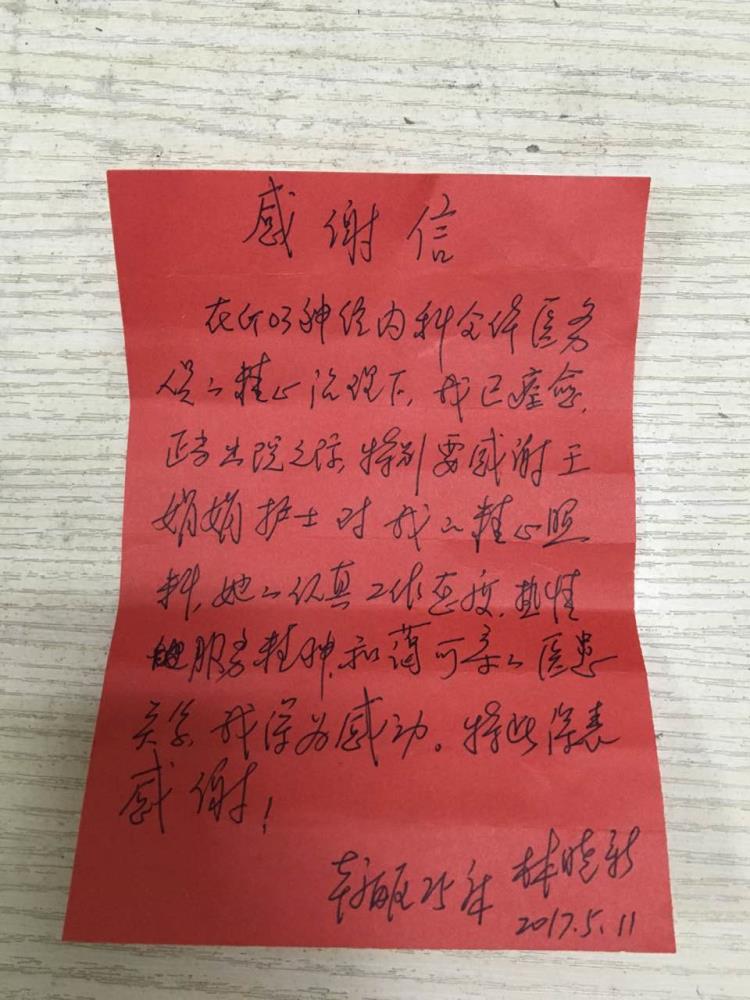 感谢信
在介03神经内科全体医务
员的精心治理下,我已痊愈,
正当出院之际,特别要感谢王
娟娟护士对我的精心照
料,她的认真工作态度,热情
服务精神,和蔼可亲的医患
关系,我深为感动。特此深表
感谢!
25床 林晓新
2017.5.11